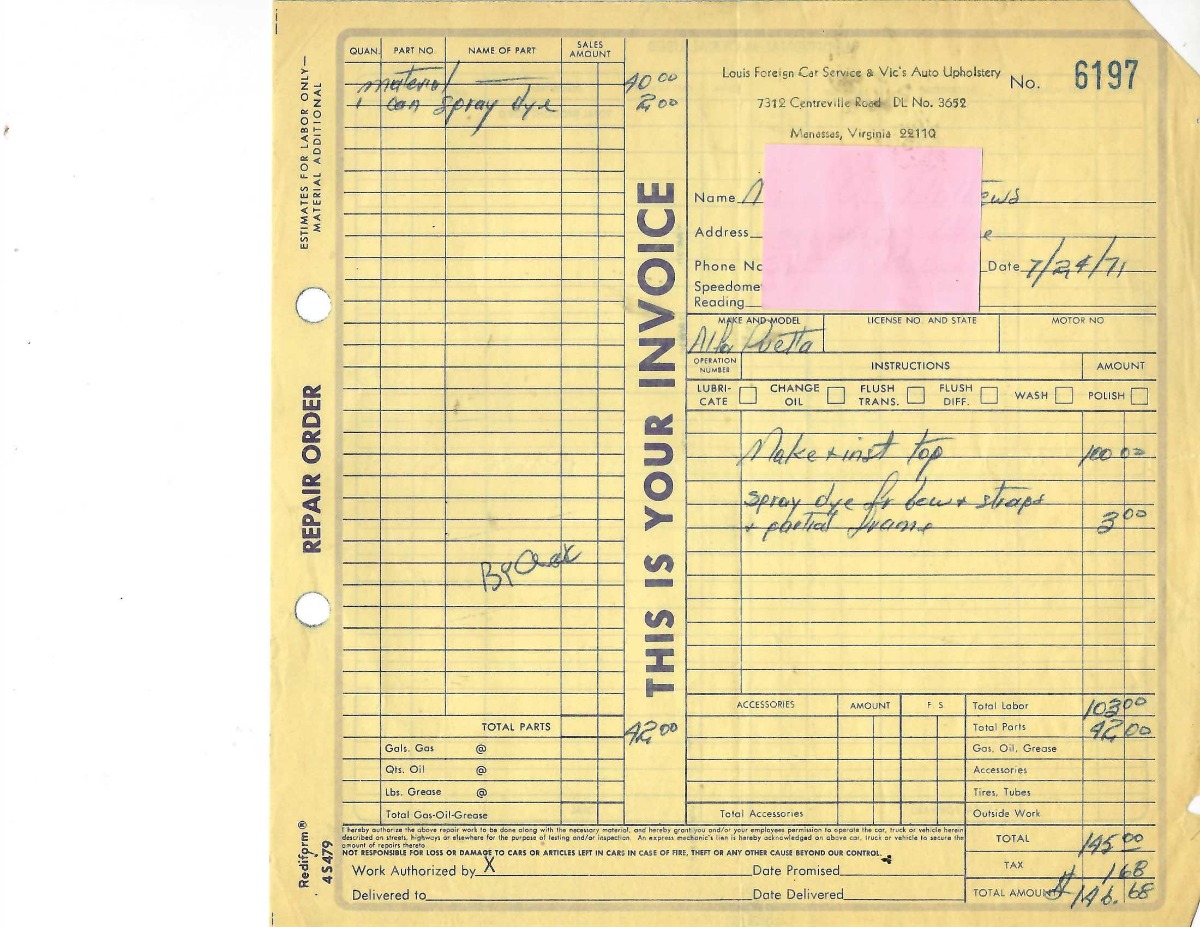 ESTIMATES FOR LABOR ONLY—
MATERIAL ADDITIONAL
REPAIR ORDER
Rediform®
4S479
QUAN. PART NO. NAME OF PART SALES AMOUNT
material 40 00
1 can spray dye 2 00
By
TOTAL PARTS 42 00
Gals. Gas @
Qts. Oil @
Lbs. Grease @
Total Gas-Oil-Grease
THIS IS YOUR INVOICE
Louis Foreign Car Service & Vic's Auto Upholstery
No. 6197
7312 Centreville Road DL No. 3652
Manassas, Virginia 22110
Name
Address
Phone No
Date 7/24/71
Speedome
Reading
MAKE AND MODEL LICENSE NO. AND STATE MOTOR NO
Alfa
OPERATION NUMBER INSTRUCTIONS AMOUNT
LUBRI-CATE CHANGE OIL FLUSH TRANS. FLUSH DIFF. WASH POLISH
Make + inst top 100 00
spray dye fr bow + straps
+ partial frame 3 00
ACCESSORIES AMOUNT F. S
Total Accessories
Total Labor 103 00
Total Parts 42 00
Gas, Oil, Grease
Accessories
Tires, Tubes
Outside Work
TOTAL 145 00
TAX 1 68
TOTAL AMOUNT $146.68
I hereby authorize the above repair work to be done along with the necessary material, and hereby grant you and/or your employees permission to operate the car, truck or vehicle herein
described on streets, highways or elsewhere for the purpose of testing and/or inspection. An express mechanic's lien is hereby acknowledged on above car, truck or vehicle to secure the
amount of repairs thereto
NOT RESPONSIBLE FOR LOSS OR DAMAGE TO CARS OR ARTICLES LEFT IN CARS IN CASE OF FIRE, THEFT OR ANY OTHER CAUSE BEYOND OUR CONTROL.
Work Authorized by X Date Promised
Delivered to Date Delivered